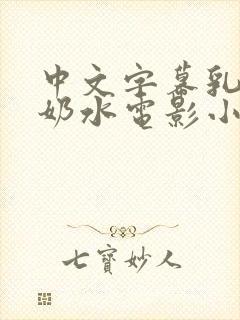 中文字幕乳
奶水电影小
七寳妙人